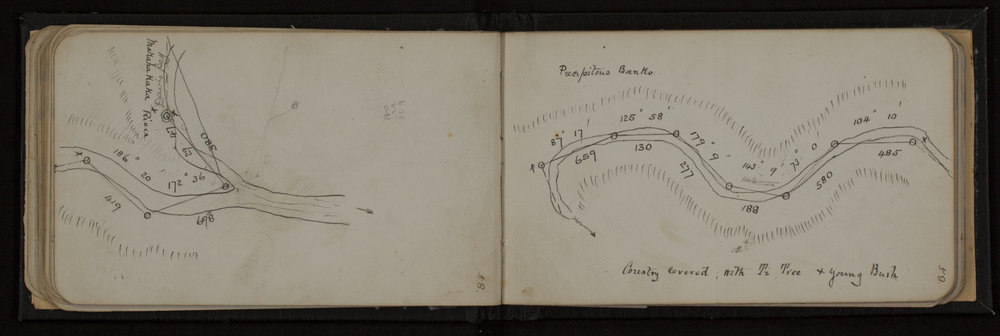 Marahakaka
River
580
LH
62
186°
20'
172° 36'
419
698
58.
Precipitous Banks.
87° 17'
125° 58'
179° 9'
143° 9'
73° 0'
104° 10'
659
130
277
188
580
485
Country covered with Ti Tree & young Bush
59